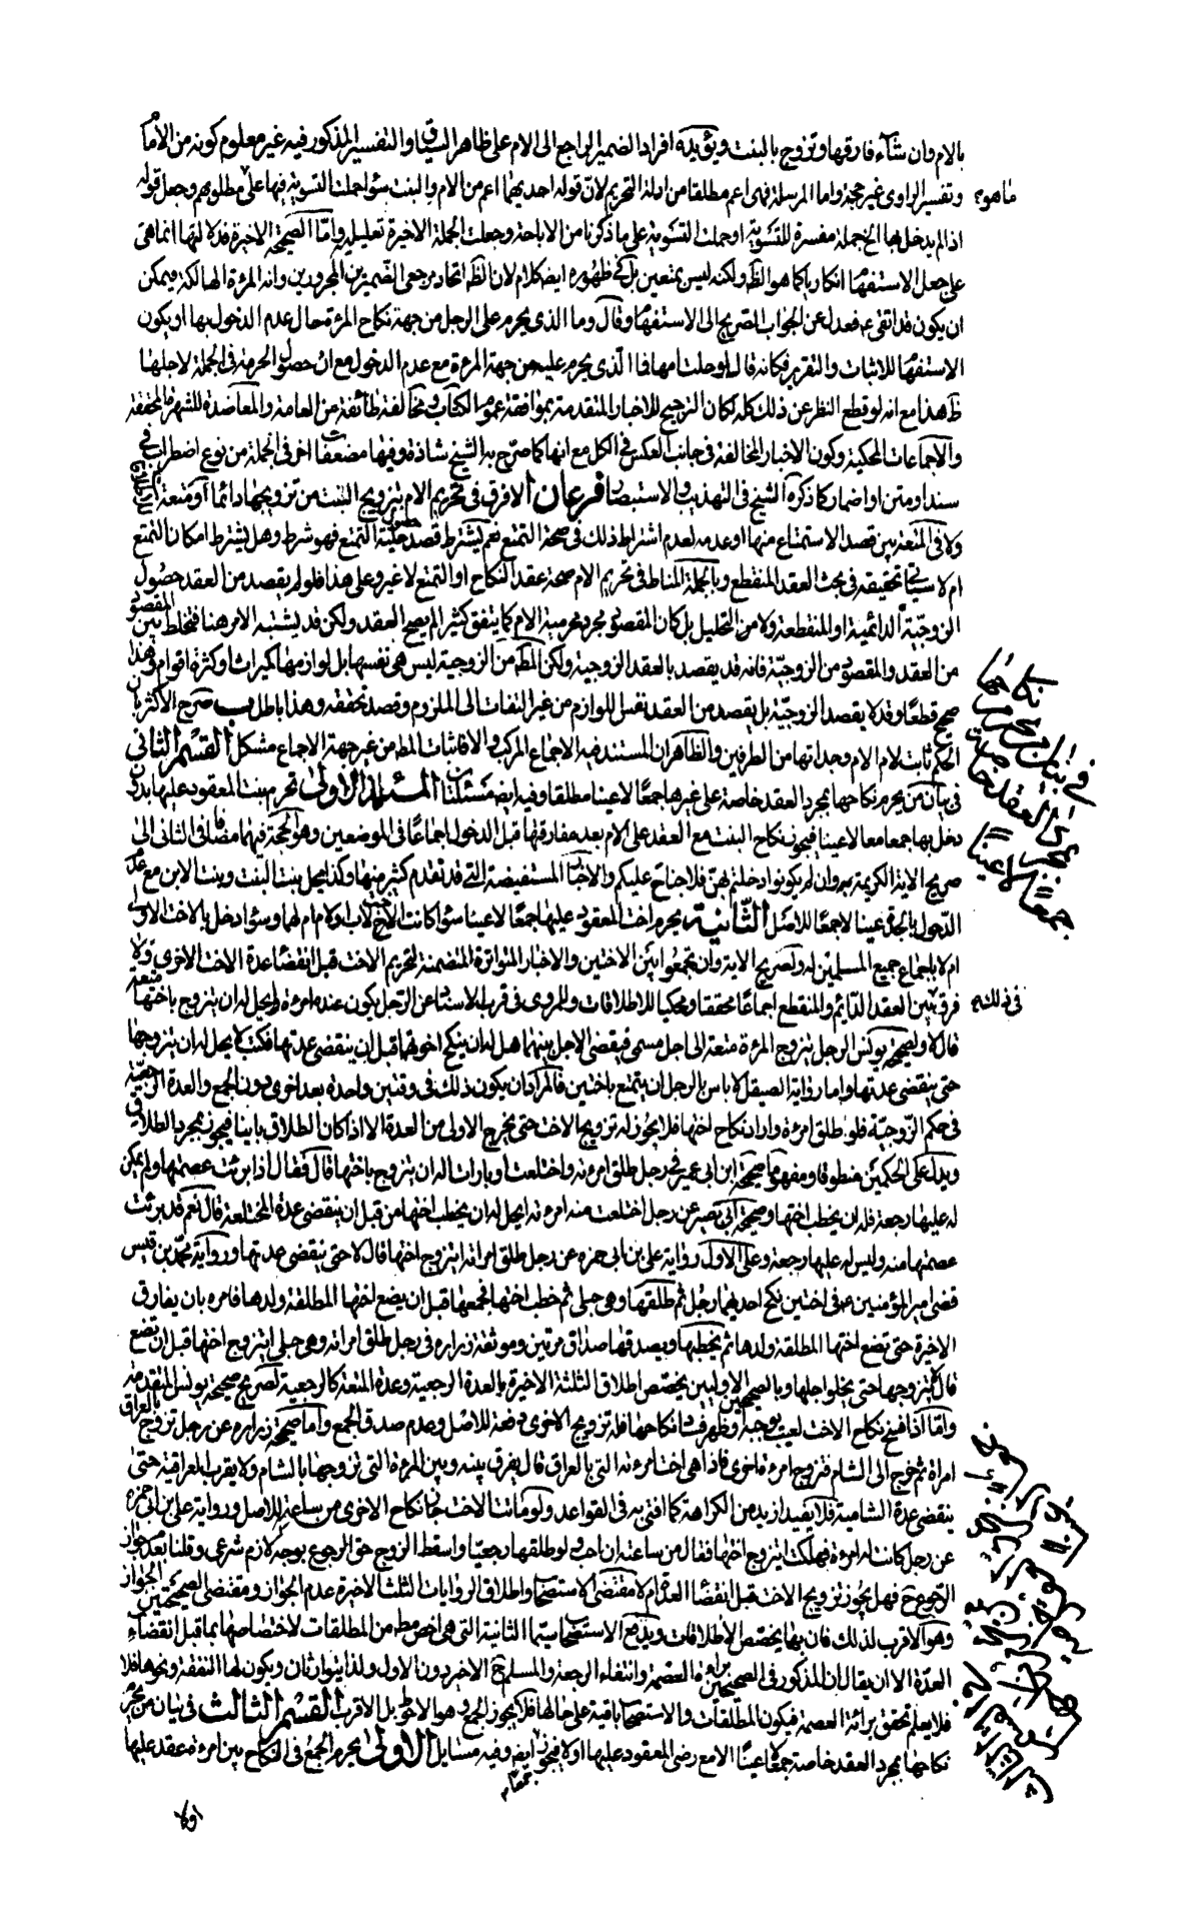 بالام وان شآء فارقها وتزوج بالبنت ويؤيده افراد الضمير الراجع الى الام على ظاهر السياق والتفسير المذكور فيه غير معلوم كونه من الامام
ماهو؟
وتفسير الراوى غير حجة واما المرسلة فهى اعم مطلقا من ادلة التحريم لان قوله احديهما اعم من الام والبنت سؤا حملت التسوية فيها على مطلوبهم وجعل قوله
اذا لم يدخل بها الخ جملة مفسرة للتسوية او حملت التسوية على ما ذكرنا من الاباحة وجعلت الجملة الاخيرة تعليلية واما الصحيحة الاخيرة فدلالتها انما هى
على جعل الاستفهام انكاريا كما هو الظ ولكنه ليس بمتعين بل فى ظهوره ايض كلام لان الظ اتحاد مرجعى الضميرين المجرورين وانه المرءة الهالكة فيمكن
ان يكون قد اتقى ع فعدل عن الجواب الصريح الى الاستفهام وقال وما الذى يحرم على الرجل من جهة نكاح المرءة حال عدم الدخول بها او يكون
الاستفهام للاثبات والتقرير فكانه قال لو حلت امها فما الذى يحرم عليه من جهة المرءة مع عدم الدخول مع ان حصول الحرمة فى الجملة لاجلها
ظ هذا مع انه لو قطع النظر عن ذلك كله لكان الترجيح للاخبار المتقدمة بموافقة عموم الكتاب ومخالفة طائفة من العامة والمعاضدة للشهرة المحققة
والاجماعات المحكية وكون الاخبار المخالفة فى جانب العكس فى الكل مع انها كما صرح به الشيخ شاذة وفيها مضعفات اخر فى الجملة من نوع اضطراب فى
سند او متن او اضمار كما ذكره الشيخ فى التهذيب والاستبصار فرعان الا فرق فى تحريم الام بتزويج البنت من تزويجها دائما او متعة
ولا فى المتعة بين قصد الاستمتاع منها او عدمه لعدم اشتراط ذلك فى صحة التمتع نعم يشترط قصد حلية التمتع فهو شرط وهل يشترط امكان التمتع
ام لا سيأتى تحقيقه فى بحث العقد المنقطع وبالجملة المناط فى تحريم الام صحة عقد النكاح او التمتع لا غير وعلى هذا فلو لم يقصد من العقد حصول
الزوجية الدائمية او المنقطعة ولا من التحليل بل كان المقصود مجرد محرمية الام كما يتفق كثيرا لم يصح العقد ولكن قد يشتبه الامر هنا فيخلط بين المقصود
من العقد والمقصود من الزوجية فانه قد يقصد بالعقد الزوجية ولكن المط من الزوجية ليس هى نفسها بل لوازمها كميراث او كثرة اقوام وهذا
صحيح قطعا وقد لا يقصد الزوجية بل يقصد من العقد نفس اللوازم من غير التفات الى الملزوم وقصد تحققه وهذا باطل ب صرح الاكثر بان
الحكم ثابت لام الام وجداتها من الطرفين والظاهر ان المستند فيه الاجماع المركب والا فاثبات المط من غير جهة الاجماع مشكل القسم الثانى
فى بيان من يحرم نكاحها بمجرد العقد خاصة على غيرها جمعا لا عينا مطلقا وفيه ايض مسئلتان المسئلة الاولى تحرم بنت المعقود عليها بدون
دخل بها جمعا معا لا عينا فيجوز نكاح البنت مع العقد على الام بعد مفارقتها قبل الدخول اجماعا فى الموضعين وهو الحجة فيهما مضافا فى الثانى الى
صريح الاية الكريمة وان لم يكونوا دخلتم بهن فلا جناح عليكم والاخبار المستفيضة التى قد تقدم كثير منها وكذا يحل بنت البنت وبنت الابن مع عدم
الدخول بالجدة عينا لا جمعا للاصل الثانية يحرم اخت المعقود عليها جمعا لا عينا سؤا كانت الاخت لاب او لام ام لهما وسؤا دخل بالاخت الاولى
ام لا باجماع جميع المسلمين له ولصريح الاية وان تجمعوا بين الاختين والاخبار المتواترة المتضمنة لتحريم الاخت قبل انقضاء عدة الاخت الاخرى ولا
فرق بين العقد الدائم والمنقطع اجماعا محققا ومحكيا للاطلاقات والمروى فى قرب الاسناد عن الرجل يكون عنده امرءة ايحل له ان يتزوج باختها متعة
قال لا ولصحيحة يونس الرجل يتزوج المرءة متعة الى اجل مسمى فيقضى الاجل بينهما هل له ان ينكح اختها قبل ان ينقضى عدتها فكتب لا يحل له ان يتزوجها
حتى ينقضى عدتها واما رواية الصيقل لا باس بالرجل ان يتمتع باختين فالمراد ان يكون ذلك فى وقتين واحدة بعد اخرى دون الجمع والعدة الرجعية
فى حكم الزوجية فلو طلق امرءة واراد نكاح اختها فلا يجوز له تزويج الاخت حتى تخرج الاولى من العدة الا اذا كان الطلاق بائنا فيجوز بمجرد الطلاق
ويدل على الحكمين منطوقا ومفهوما صحيحة ابن ابى عمير فى رجل طلق امرءته او اختلعت او بارات اله ان يتزوج باختها قال فقال اذا برئت عصمتها ولم يكن
له عليها رجعة فله ان يخطب اختها وصحيحة ابى بصير عن رجل اختلعت منه امرءته ايحل له ان يخطب اختها من قبل ان ينقضى عدة المختلعة قال نعم قد برئت
عصمتها منه وليس له عليها رجعة وعلى الاول رواية على بن ابى حمزه عن رجل طلق امراته ايتزوج اختها قال لا حتى ينقضى عدتها ورواية محمد بن قيس
قضى امير المؤمنين ع فى اختين نكح احديهما رجل ثم طلقها وهى حبلى ثم خطب اختها فجمعها قبل ان يضع اختها المطلقة ولدها فامره بان يفارق
الاخيرة حتى تضع اختها المطلقة ولدها ثم يخطبها ويصدقها صداق مرتين وموثقة زراره فى رجل طلق امراته وهى حبلى ايتزوج اختها قبل ان تضع
قال لا يتزوجها حتى يخلو اجلها وبالصحيحين الاوليين يخصص اطلاق الثلثة الاخيرة بالعدة الرجعية وعدة المتعة كالرجعية لصريح صحيحة يونس المتقدمة
واما اذا فسخ نكاح الاخت لعيب يوجبه او ظهر فساد نكاحها فله تزويج الاخرى دفعة للاصل وعدم صدق الجمع واما صحيحة زراره عن رجل تزوج بالعراق
امراة ثم خرج الى الشام فتزوج امرءة اخرى فاذا هى اخت امرءته التى بالعراق قال يفرق بينه وبين المرءة التى تزوجها بالشام ولا يقرب العراقية حتى
ينقضى عدة الشامية فلا يفيد ازيد من الكراهة كما افتى به فى القواعد ولو ماتت الاخت جاز نكاح الاخرى من ساعته للاصل ورواية على بن ابى حمزه
عن رجل كانت له امرءة فهلكت ايتزوج اختها فقال من ساعته ان احب ولو طلقها رجعيا واسقط الزوج حق الرجوع بوجه لازم شرعى وقلنا بعدم جواز
الرجوع ح فهل يجوز تزويج الاخت قبل انقضاء العدة ام لا مقتضى الاستصحاب واطلاق الروايات الثلث الاخيرة عدم الجواز ومقتضى الصحيحتين الجواز
وهو الاقرب لذلك فان بهما يخصص الاطلاقات ويندفع الاستصحاب سيما الثانية التى هى اخص مط من المطلقات لاختصاصها بما قبل انقضاء
العدة الا ان يقال ان المذكور فى الصحيحين براءة العصمة وانتفاء الرجعة والمسلم ح الاخير دون الاول ولذا يتوارثان ويكون لها النفقة ونحوها فلا
فلا يعلم تحقق برائة العصمة فيكون المطلقات والاستصحاب باقية على حالها فلا يجوز الجمع وهو الاحوط بل الاقرب القسم الثالث فى بيان من يحرم
نكاحها بمجرد العقد خاصة جمعا لا عينا الا مع رضى المعقود عليها اولا فيجوز ايض وفيه مسايل الاولى يحرم الجمع فى النكاح بين امرءة عقد عليها
اولا